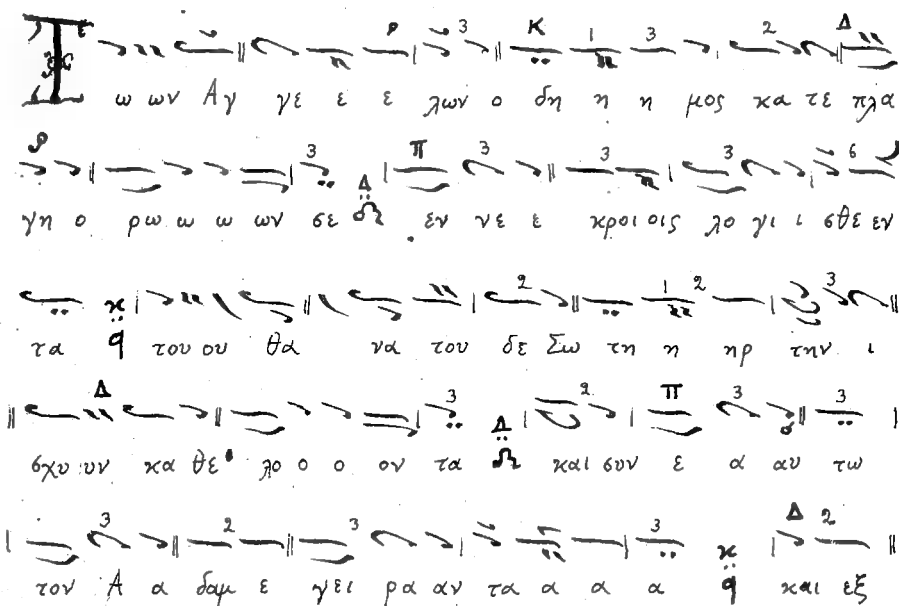 Τ ω ων Αγ γε ε ε λων ο δη η η μος κα τε πλα
γη ο ρω ω ω ων σε εν νε ε κροι οις λο γι ι σθε εν
τα του ου θα να του δε Σω τη η ηρ την ι
σχυ υν κα θε λο ο ο ον τα και συν ε α αυ τω
τον Α α δαμ ε γει ρα αν τα α α α και εξ